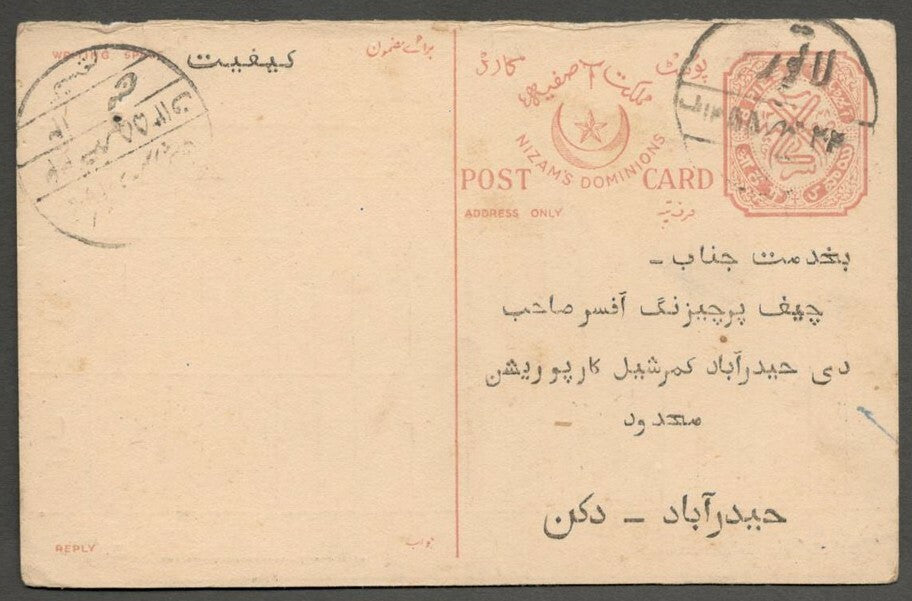 WRITING SPACE
برائے مضمون
کیفیت
پوسٹ
کارڈ
مملکت آصفیہ
NIZAM'S DOMINIONS
POST CARD
ADDRESS ONLY
صرف پتہ
لاتور
بخدمت جناب -
چیف پرچیزنگ آفسر صاحب
دی حیدرآباد کمرشیل کارپوریشن
محدود
حیدرآباد - دکن
REPLY
جواب